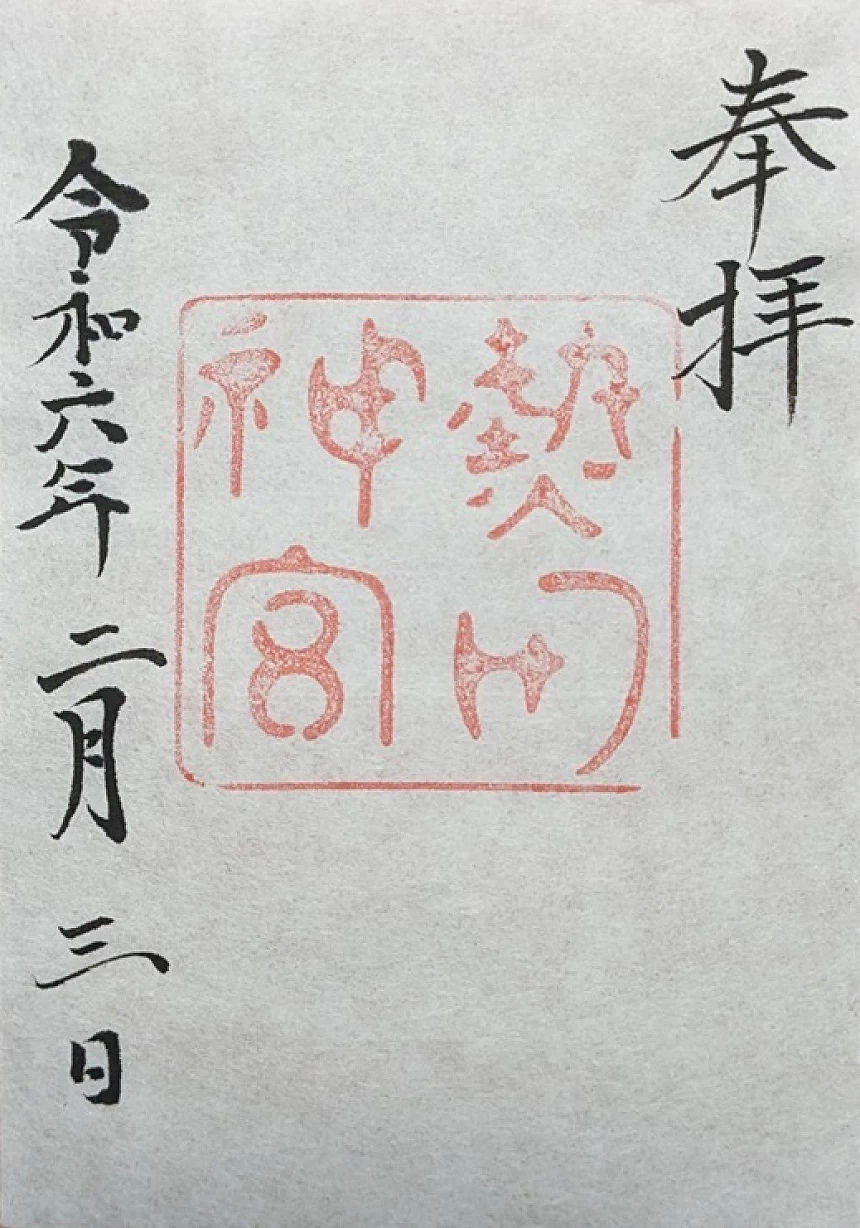 奉拝
熱田
神宮
令和六年二月三日